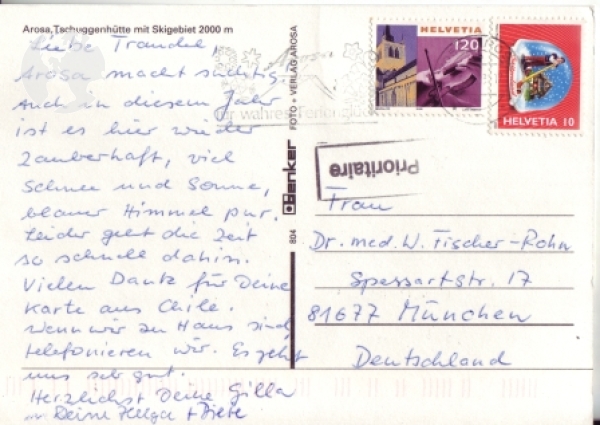 Arosa, Tschuggenhütte mit Skigebiet 2000 m
Liebe Traudel,
Arosa macht süchtig.
Auch in diesem Jahr
ist es hier wieder
zauberhaft, viel
Schnee und Sonne,
blauer Himmel pur.
Leider geht die Zeit
so schnell dahin.
Vielen Dank für Deine
Karte aus Chile.
Wenn wir zu Haus sind,
telefonieren wir. Es geht
uns sehr gut.
Herzlichst Deine Gilla
Deine Helga + Diete
804 Benker FOTO + VERLAG AROSA
HELVETIA
120
HELVETIA 10
für wahre Ferienglück
Prioritaire
Frau
Dr. med. W. Fischer-Rohn
Spessartstr. 17
81677 München
Deutschland